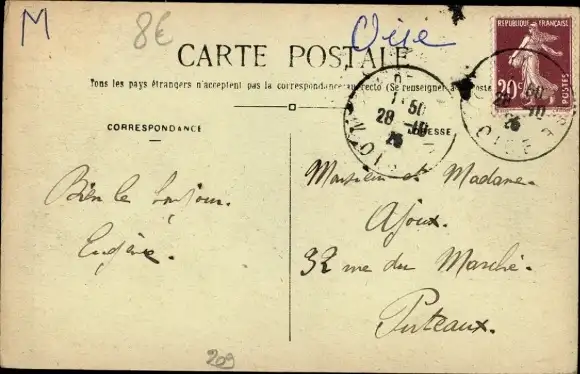 M
8€
Oise
CARTE POSTALE
Tous les pays étrangers n'acceptent pas la correspondance au recto (Se renseigner à la poste
CORRESPONDANCE
ADRESSE
RÉPUBLIQUE FRANÇAISE
20c
POSTES
1 50
28 - 10
26
OISE
50
28 10
26
OISE
Bien le bonjour.
Eugène.
Monsieur et Madame
Ajoux.
32 rue du Marché.
Puteaux.
209